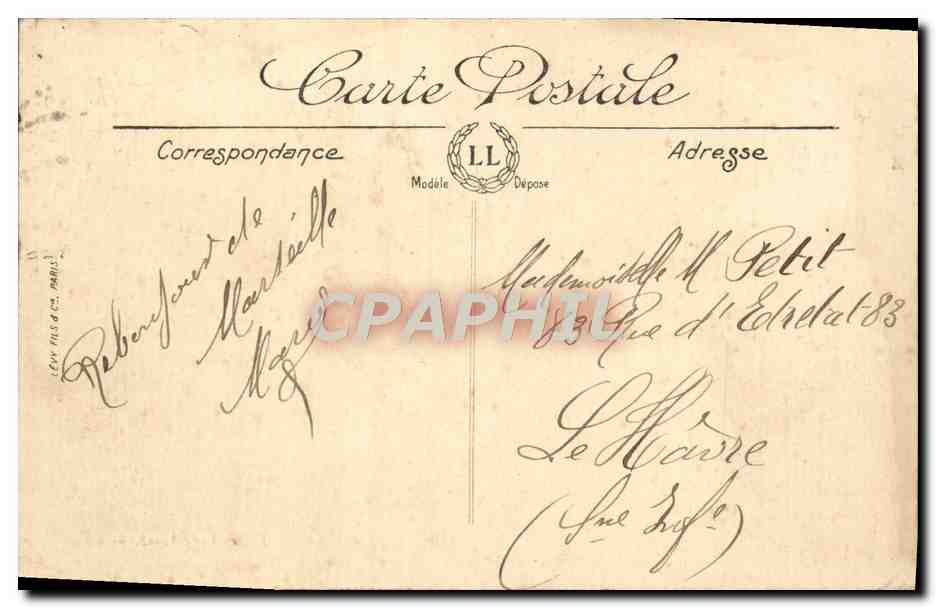 Carte Postale
Correspondance
LL
Modèle Dépose
Adresse
LÉVY FILS & Cie. PARIS
de
Marseille
CPAPHIL
Mademoiselle M Petit
83 Rue d'Etretat 83
Le Hâvre
(Sne Infe)